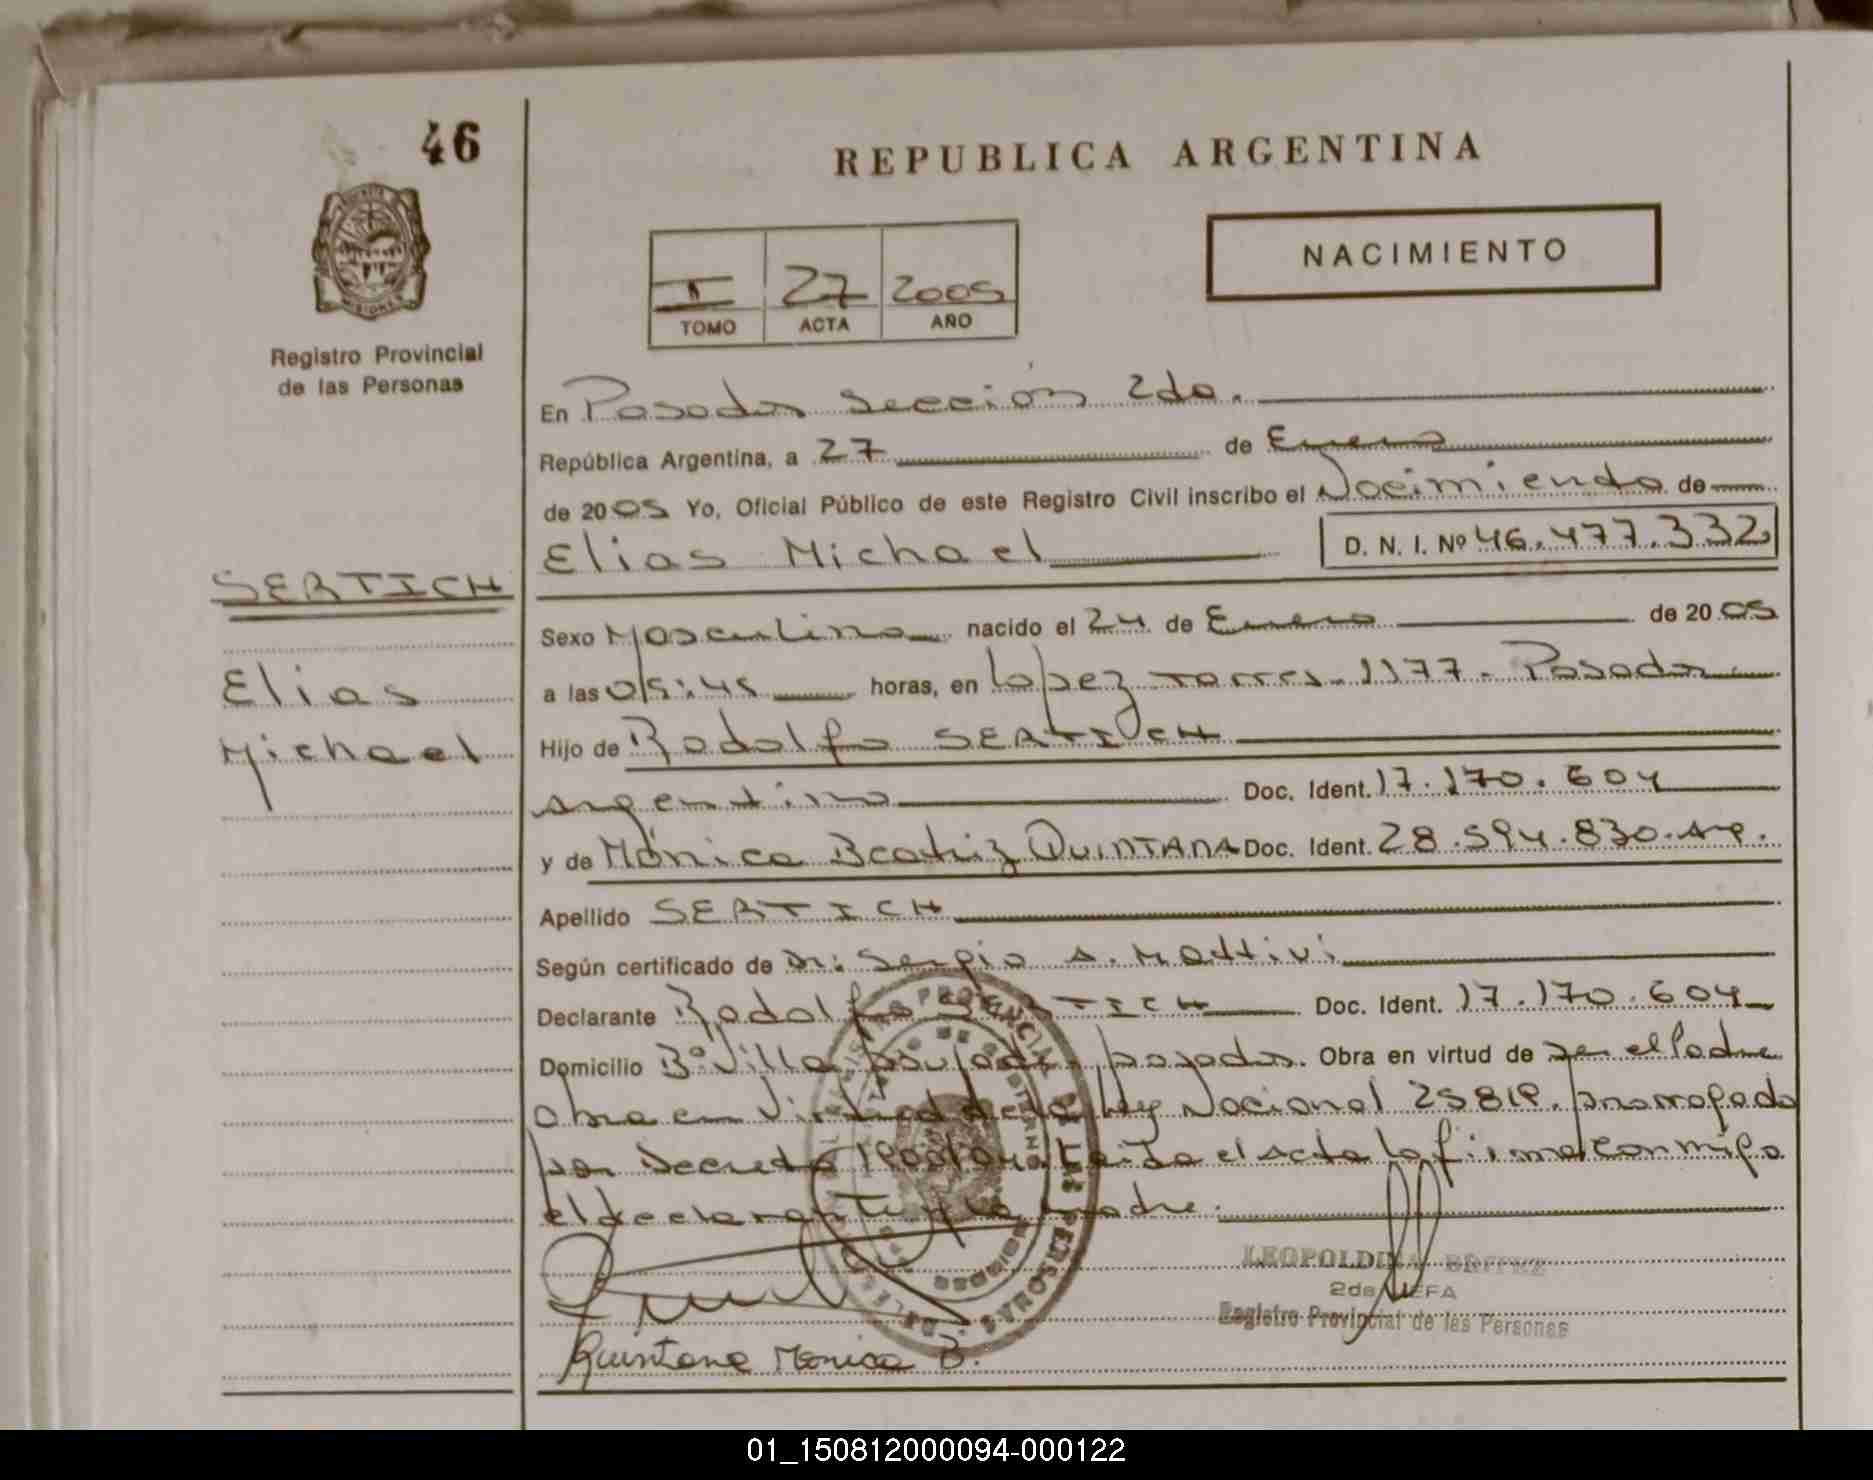 46
REPUBLICA ARGENTINA
NACIMIENTO
I 27 2005
TOMO ACTA AÑO
MISIONES
Registro Provincial
de las Personas
En Posadas Sección 2da.
República Argentina, a 27 de Enero
de 2005 Yo, Oficial Público de este Registro Civil inscribo el Nacimiento de
Elias Michael D. N. I. Nº 46.477.332
SERTICH
Sexo Masculino nacido el 24 de Enero de 2005
Elias
a las 05:45 horas, en Lopez Torres 1177 - Posadas
Michael
Hijo de Rodolfo SERTICH
argentino Doc. Ident. 17.170.604
y de Mónica Beatriz QUINTANA Doc. Ident. 28.594.830 Arg.
Apellido SERTICH
Según certificado de Dr: Sergio A. Mattivi
Declarante Rodolfo SERTICH Doc. Ident. 17.170.604
Domicilio Bº Villa Posadas. Obra en virtud de ser el Padre
obra en Virtud de la Ley Nacional 25819. prorrogada
por Decreto Leida el Acta la firma conmigo
el declarante y la madre.
LEOPOLDINA BRITEZ
2da JEFA
Registro Provincial de las Personas
Quintana Monica B.
01_150812000094-000122